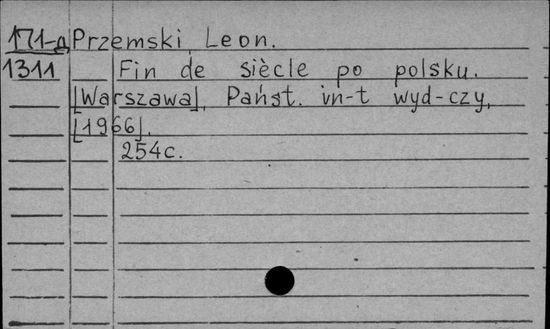 171-д Przemski Leon.
1311 Fin de siècle po polsku.
[Warszawa], Państ. in-t wyd-czy,
[1966].
254с.